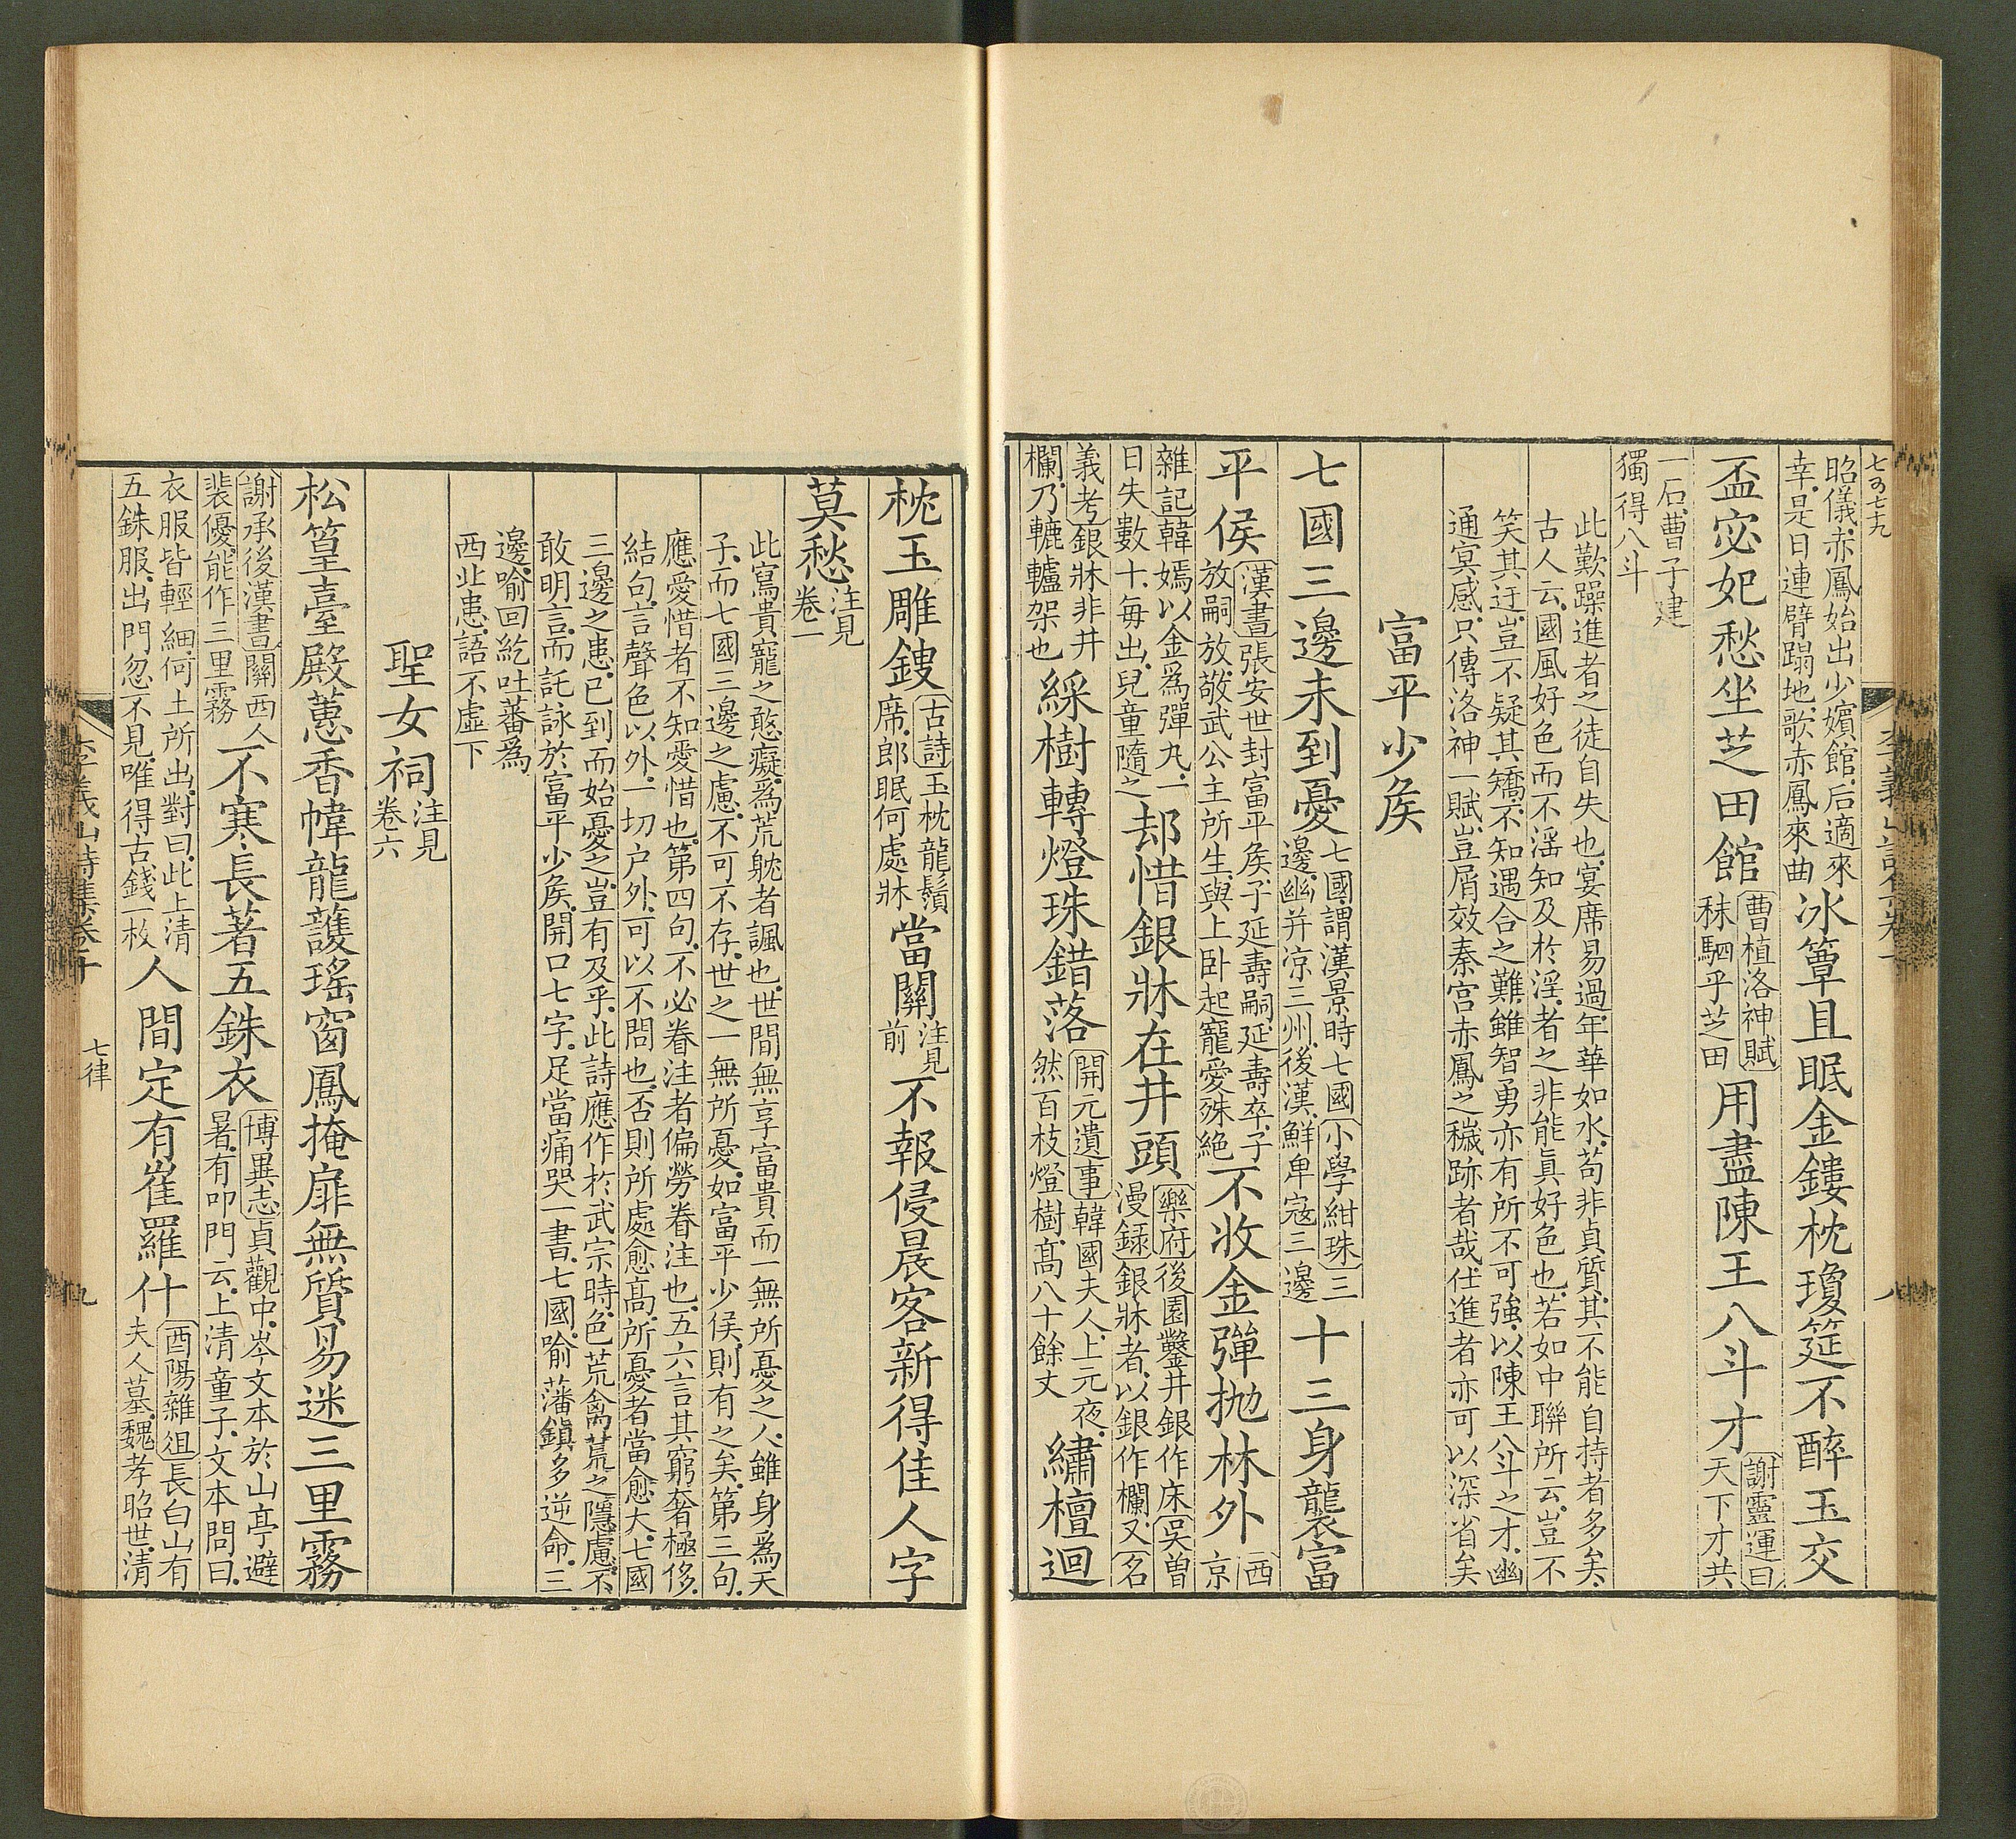 七の七九
李義山詩集卷十
八
昭儀赤鳳始出少嬪館后適來
幸是日連臂蹋地歌赤鳳來曲
冰簟且眠金鏤枕瓊筵不醉玉交
盃宓妃愁坐芝田館
曹植洛神賦
秣駟乎芝田
用盡陳王八斗才
謝靈運曰
天下才共
一石曹子建
獨得八斗
此歎躁進者之徒自失也宴席易過年華如水苟非貞質其不能自持者多矣
古人云國風好色而不淫知及於淫者之非能眞好色也若如中聯所云豈不
笑其迂豈不疑其矯不知遇合之難雖智勇亦有所不可強以陳王八斗之才幽
通冥感只傳洛神一賦豈屑效秦宮赤鳳之穢跡者哉仕進者亦可以深省矣
富平少矦
七國三邊未到憂
七國謂漢景時七國小學紺珠三
邊幽并涼三州後漢鮮卑寇三邊
十三身襲富
平侯
漢書張安世封富平矦子延壽嗣延壽卒子
放嗣放敬武公主所生與上卧起寵愛殊絶
不收金彈拋林外
西
京
雜記韓嫣以金爲彈丸一
日失數十毎出兒童隨之
却惜銀牀在井頭
樂府後園鑿井銀作床吳曽
漫録銀牀者以銀作欄又名
義考銀牀非井
欄乃轆轤架也
綵樹轉燈珠錯落
開元遺事韓國夫人上元夜
然百枝燈樹高八十餘丈
繡檀迴
枕玉雕鎪
古詩玉枕龍鬚
席郎眠何處牀
當關
注見
前
不報侵晨客新得佳人字
莫愁
注見
卷一
此寫貴寵之憨癡爲荒躭者諷也世間無享富貴而一無所憂之人雖身爲天
子而七國三邊之慮不可不存世之一無所憂如富平少侯則有之矣第三句
應愛惜者不知愛惜也第四句不必眷注者偏勞眷注也五六言其窮奢極侈
結句言聲色以外一切户外可以不問也否則所處愈高所憂者當愈大七國
三邊之患已到而始憂之豈有及乎此詩應作於武宗時色荒禽荒之隱慮不
敢明言而託詠於富平少矦開口七字足當痛哭一書七國喻藩鎭多逆命三
邊喻回紇吐蕃爲
西北患語不虛下
聖女祠
注見
卷六
松篁臺殿蕙香幃龍護瑤窗鳳掩扉無質易迷三里霧
謝承後漢書關西人
裴優能作三里霧
不寒長著五銖衣
博異志貞觀中岑文本於山亭避
暑有叩門云上清童子文本問曰
衣服皆輕細何土所出對曰此上清
五銖服出門忽不見唯得古錢一枚
人間定有崔羅什
酉陽雜俎長白山有
夫人墓魏孝昭世清
李義山詩集卷十
七律
九